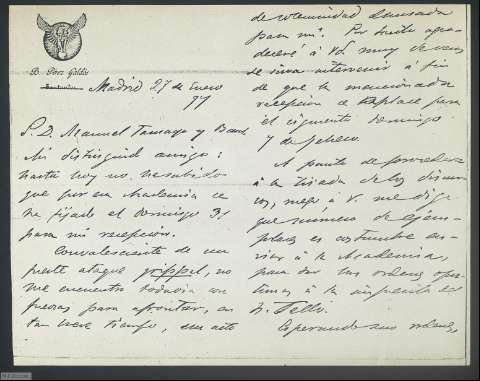 B. Perez Galdós
Santander
Madrid 27 de Enero
97
S. D. Manuel Tamayo y Baus
Mi distinguido amigo:
hasta hoy no he sabido
que por esa Academia se
ha fijado el domingo 31
para mi recepción.
Convaleciente de un
fuerte ataque grippal, no
me encuentro todavía con
fuerzas para afrontar, en
tan breve tiempo, un acto
de solemnidad
para mí. Por tanto agra-
deceré á Vd. muy de veras
se sirva intervenir á fin
de que la mencionada
recepción se aplace para
el siguiente domingo
7 de febrero.
A punto de procederse
á la tirada de los discur-
sos, ruego á V. me diga
que número de ejem-
plares es costumbre en-
viar á la Academia,
para dar las órdenes opor-
tunas á la imprenta de
Tello.
Esperando sus ordenes,